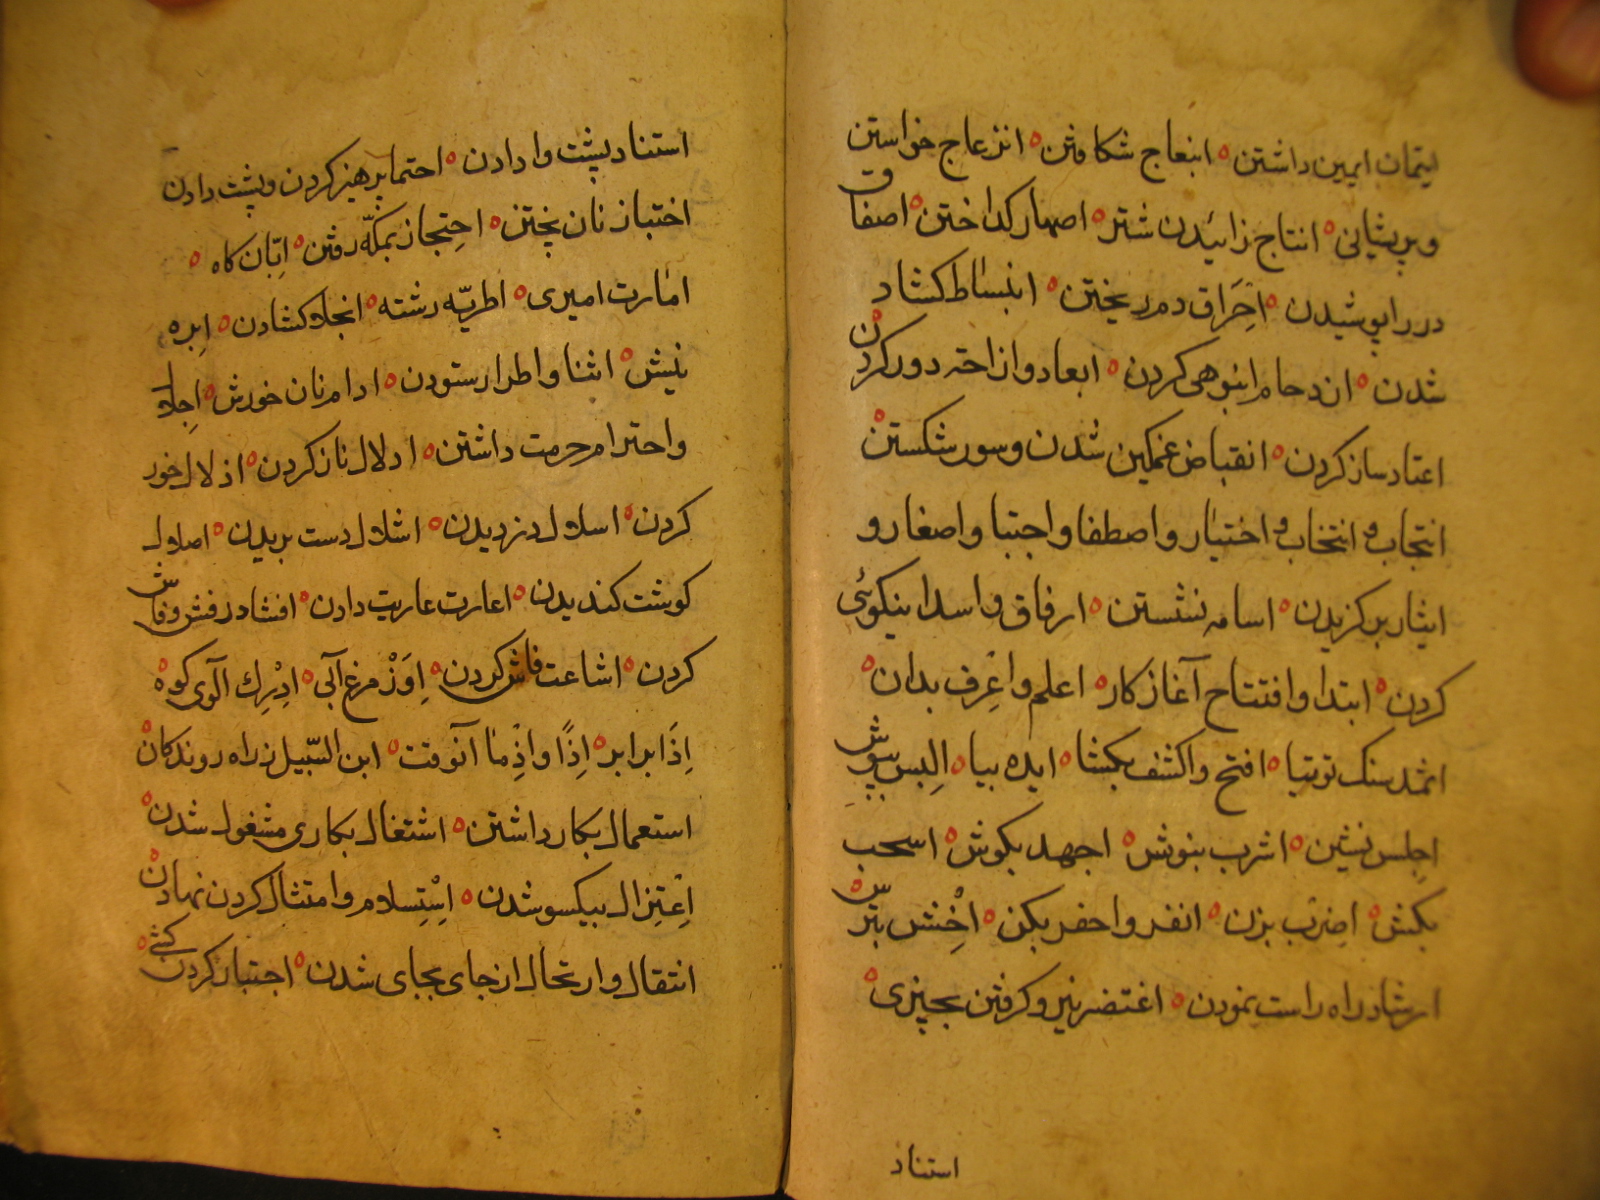 ایتمان ایمین داشتن ○ ابنعاج شکافتن ○ انزعاج خواستن
و پریشانی ○ انتاج زائیدن شتر ○ اصهار کداختن ○ اصفاق
در را پوشیدن ○ اِحَراق دم ریختن ○ انبساط کشاد
شدن ○ ازدحام انبوهی کردن ○ ابعاد و ازاحه دور کردن ○
اعتاد ساز کردن ○ انقباض غمکین شدن و سور شکستن ○
انتجاب و انتخاب و اختیار و اصطفا و اجتبا و اصغار و
ایثار بر کزیدن ○ اسامه نشستن ○ ارفاق و اسدا نیکوئی
کردن ○ ابتدا و افتتاح آغاز کار ○ اعلم و اعِرف بدان ○
اثمد سنک توتیا ○ افتح و اکشف بکشا ○ ایده بیا ○ اِلبس بپوش
اجِلس نشین ○ اشرب بنوش ○ اجهد بکوش ○ اسحب
بکش ○ اضرب بزن ○ انفر و احفر بکن ○ اخْشِ بترس ○
ارشاد راه راست نمودن ○ اغتضر نیرو کرفتن بچیزی ○
استناد
استناد پشت وا دادن ○ احتما پرهیز کردن و پشت دادن
اختباز نان پختن ○ احِتجاز بمکّه رفتن ○ اتِبان کاه ○
امارت امیری ○ اطریّه رشته ○ انجلا کشادن ○ ابِره
نیش ○ اثنا و اطرا ستودن ○ ادام نان خورش ○ اجلال
و احترام حرمت داشتن ○ ادلال ناز کردن ○ اذلال خور
کردن ○ اسلال دزدیدن ○ اشلال دست بریدن ○ اصلال
کوشت کندیدن ○ اعارت عاریت دادن ○ افشا درفش و فاش
کردن ○ اشاعت فاش کردن ○ اِوَزْ مرغ آبی ○ ادِْرِك آلوی کوه ○
اِذَا برابر ○ اِذًا و اذِْما آنوقت ○ ابن السّبیل راه روندکان ○
استعمال بکار داشتن ○ اشتغال بکاری مشغول شدن ○
اعِْتِزال بیکسو شدن ○ اسِْتِسلام و امتثال کردن نهادن ○
انتقال و ارتحال از جای بجای شدن ○ اجتبار کردن کشی ○